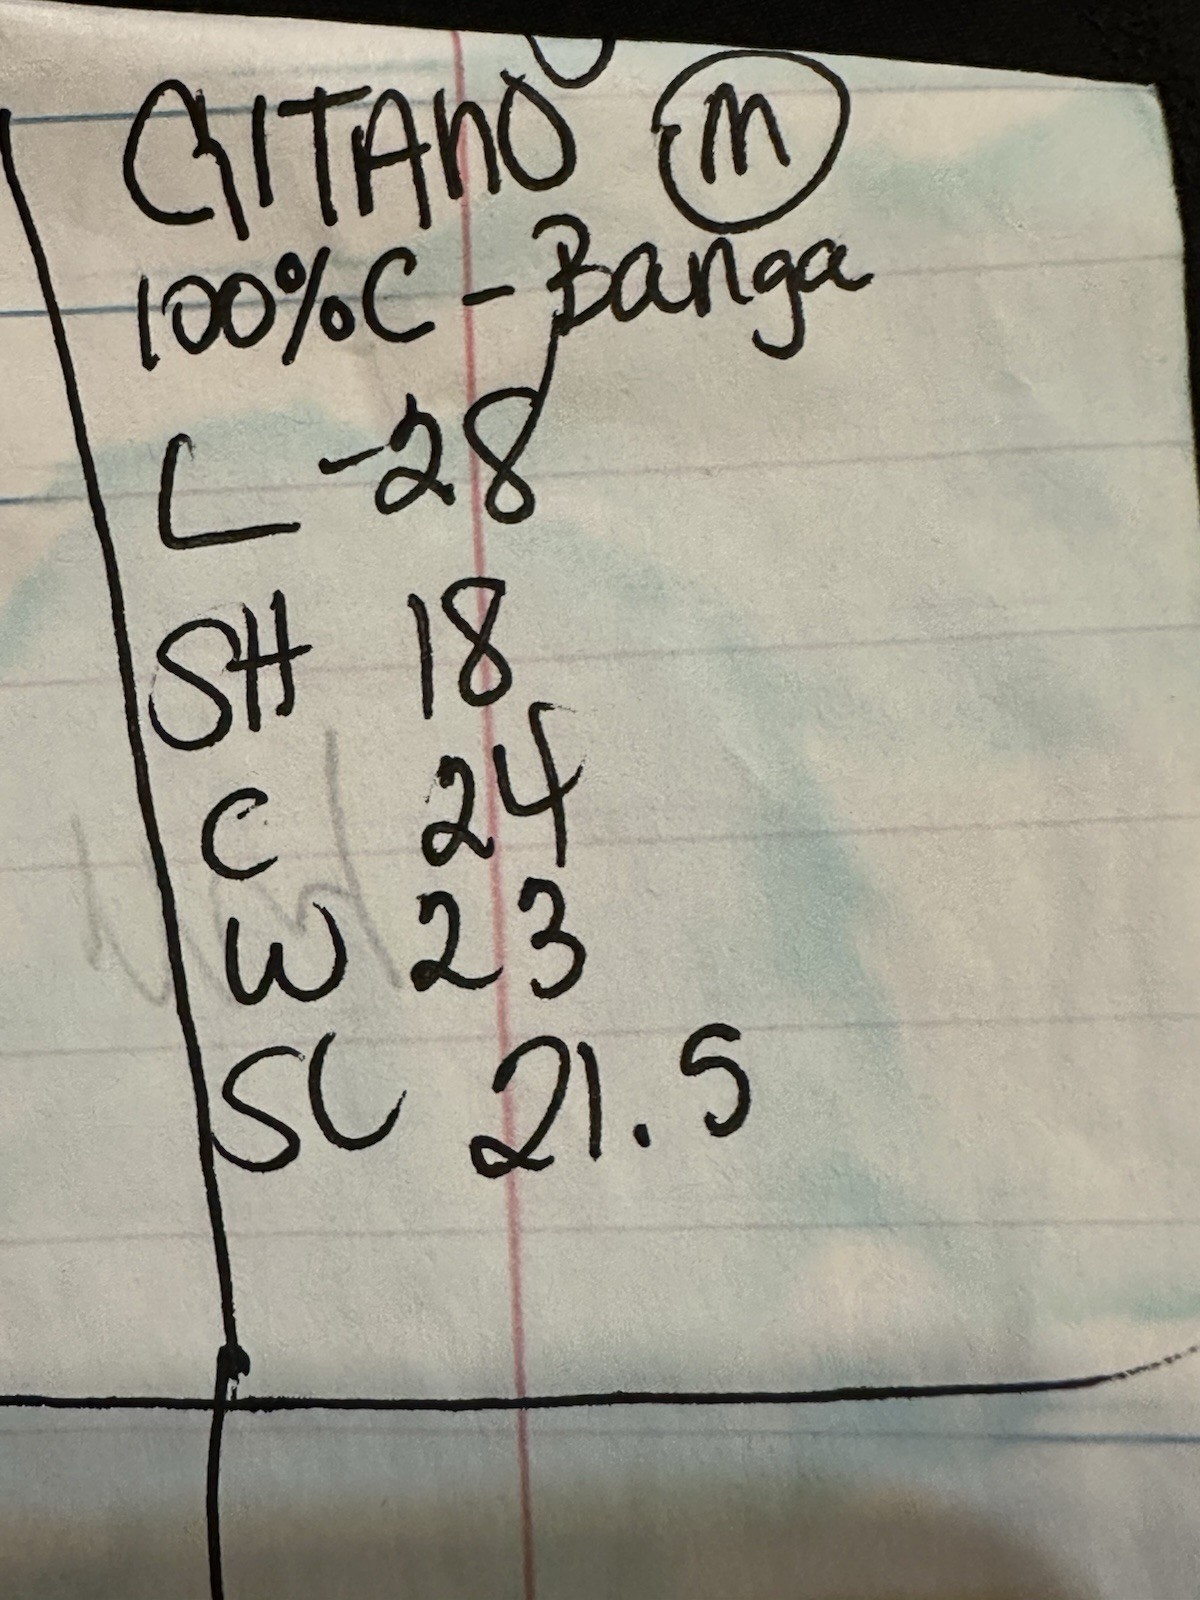 GITANO M
100%C - Banga
L -28
SH 18
C 24
W 23
SL 21.5